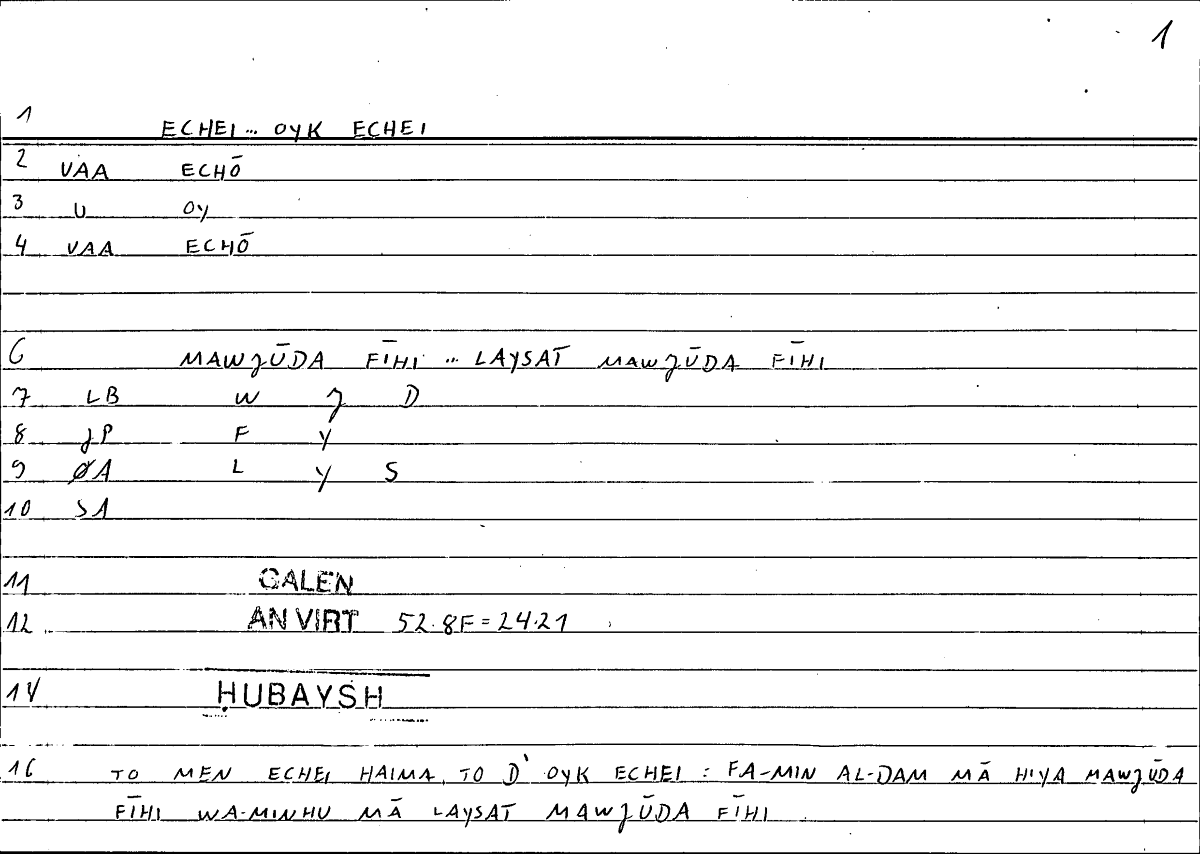 1
1 ECHEI... OYK ECHEI
2 VAA ECHŌ
3 U OY
4 VAA ECHŌ
6 MAWJŪDA FĪHI ... LAYSAT MAWJŪDA FĪHI
7 LB W J D
8 JP F Y
9 ØA L Y S
10 SA
11 GALEN
12 AN VIRT 52.8F=24.21
14 ḤUBAYSH
16 TO MEN ECHEI HAIMA, TO D' OYK ECHEI : FA-MIN AL-DAM MĀ HIYA MAWJŪDA
FĪHI WA-MINHU MĀ LAYSAT MAWJŪDA FĪHI